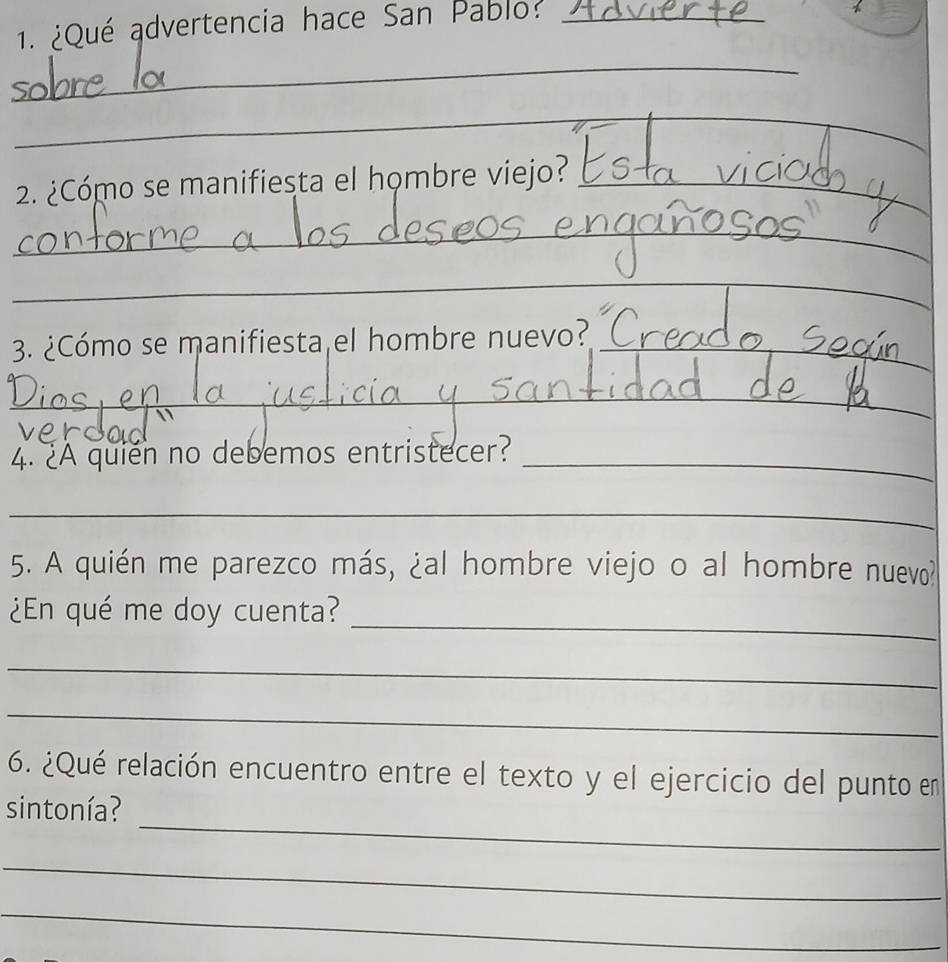 1. ¿Qué advertencia hace San Pablo? Advierte
sobre la
2. ¿Cómo se manifiesta el hombre viejo? "Esta viciado y
conforme a los deseos engañosos"
3. ¿Cómo se manifiesta el hombre nuevo? "Creado, Según
Dios, en la justicia y santidad de la
verdad"
4. ¿A quién no debemos entristecer?
5. A quién me parezco más, ¿al hombre viejo o al hombre nuevo?
¿En qué me doy cuenta?
6. ¿Qué relación encuentro entre el texto y el ejercicio del punto en
sintonía?